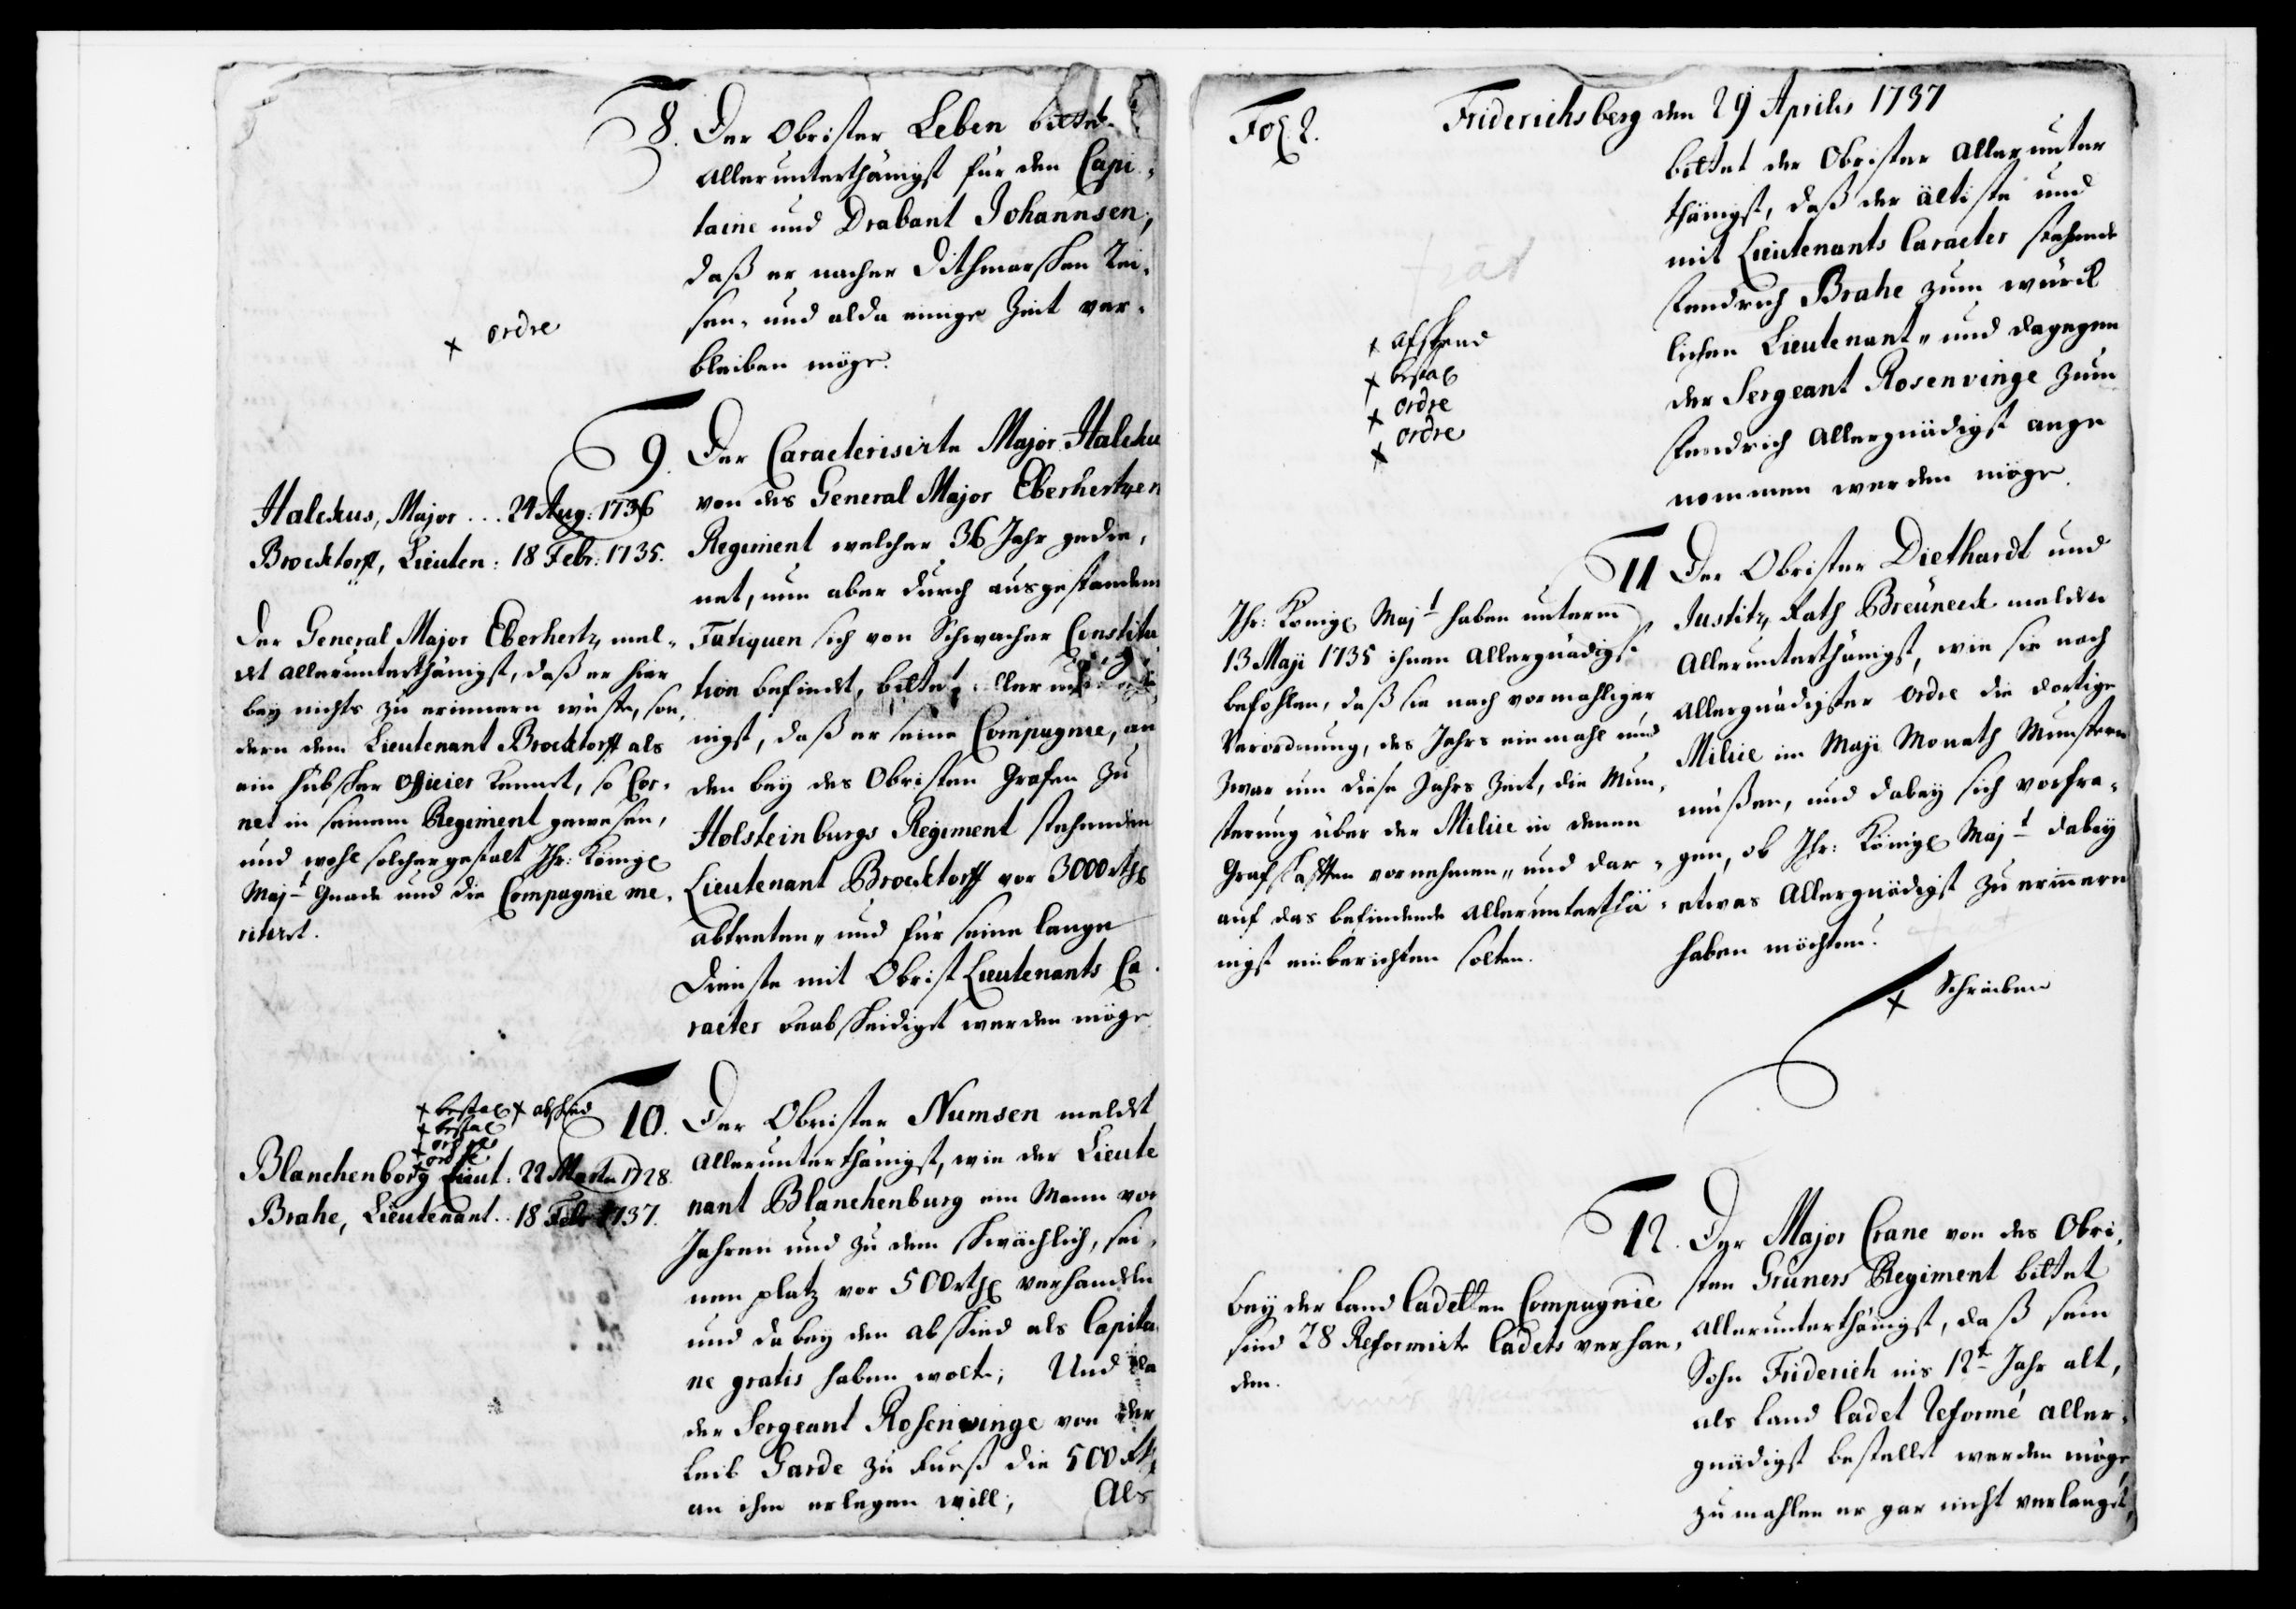 8. Der Obrister Leben bittet
Allerunterthänigst für den Capi-
taine und Drabant Johannsen,
daß er nacher Dithmarschen Rei-
sen, und alda einige Zeit ver-
bleiben möge.
x ordre
9. Der Caracterisirte Major Halckus
von des General Major Eberhertzen
Regiment welcher 36 Jahr gedie-
net, nun aber durch ausgestandene
Fatiquen sich von Schwacher Constitu-
tion befindet, bittet allerunterthä-
nigst, daß er seine Compagnie, an
den bey des Obristen Grafen zu
Holsteinburgs Regiment stehenden
Lieutenant Brocktorff vor 3000 rthl
abtreten, und für seine lange
Dienste mit Obrist Lieutenants Ca-
racter beabscheidiget werden möge
Halckus, Major ... 24 Aug: 1736
Brocktorff, Lieuten: 18 Febr: 1735.
Der General Major Eberhertz, mel-
det allerunterthänigst, daß er hier
bey nichts zu erinnern wüste, son-
dern dem Lieutenant Brocktorff als
ein hübscher Officier kennet, so Cor-
net in seinem Regiment gewesen,
und wohl solchergestalt Ihr: Königl
Majt Gnade und die Compagnie me-
ritiret.
x bestal x abscheid
x bestal
x ordre
x ordre
10. Der Obrister Numsen meldet
Allerunterthänigst, wie der Lieute
nant Blanckenburg ein Mann von
Jahren und zu dem schwächlich, sei-
nen platz vor 500 rthl verhandeln
und dabey den abschied als Capitai
ne gratis haben wolte; Und da
der Sergeant Rosenvinge von der
Leib Garde zu Fueß die 500 rthl
an ihm erlegen will; Als
Blanckenborg Lieut: 22 Martii 1728.
Brahe, Lieutenant.. 18 Febr 1737.
Fol. 2. Friderichsberg den 29 Aprilis 1737
bittet der Obrister Allerunter
thänigst, daß der älteste und
mit Lieutenants Caracter stehende
Fendrich Brahe zum würck
lichen Lieutenant, und dagegen
der Sergeant Rosenvinge zum
Fendrich Allergnädigst ange
nommen werden möge.
x Afskeed
x bestal
x ordre
x ordre
11 Der Obrister Diethardt und
Justitz Rath Breüneck melden
Allerunterthänigst, wie sie nach
Allergnädigster Ordre die dortige
Milice im Maji Monath Munstern
müßen, und dabey sich vorfra-
gen, ob Ihr: Königl Majt dabey
etwas Allergnädigst zu erinnern
haben möchten?
x Schreiben
Ihr: Königl Majt haben unterm
13 Maji 1735 ihnen Allergnädigst
befohlen, daß sie nach vormahliger
Verordnung, des Jahrs einmahl und
zwar um diese Jahrs Zeit, die Mun-
sterung über der Milice in denen
Grafschafften vornehmen, und dar-
auf das befindende Allerunterthä-
nigst einberichten solten.
12. Der Major Crane von des Obri-
sten Gruners Regiment bittet
Allerunterthänigst, daß sein
Sohn Friderich ins 12te Jahr alt,
als Land Cadet Reformé aller-
gnädigst bestellet werden möge,
zumahlen er gar nicht verlanget,
Bey der Land Cadetten Compagnie
sind 28 Reformirte Cadets verhan-
den.